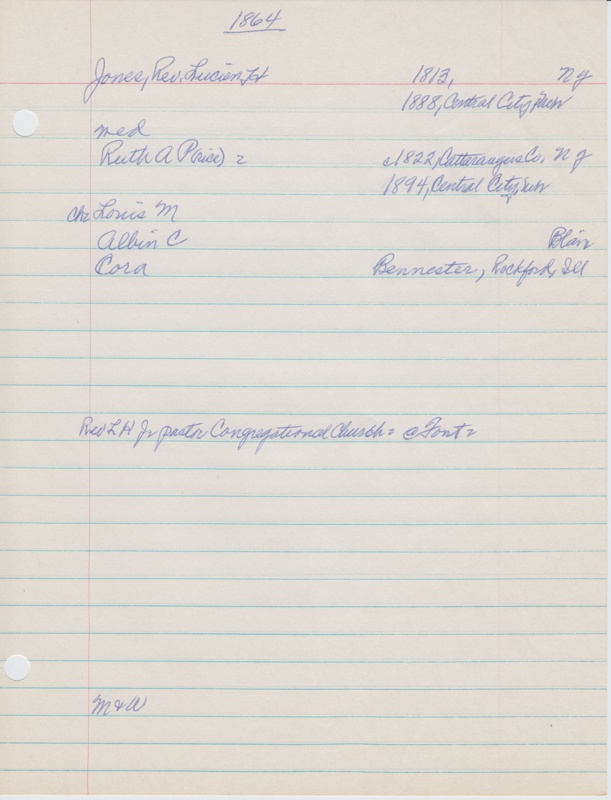 1864
Jones, Rev. Lucien H 1813, NY
1888, Central City,
med
Ruth A P(rice) = c1822, Cattaraugus Co, NY
1894, Central City,
ch: Louis M
Albin C Blair
Cora Bennester, Rockford, Ill
Rev L H Jr pastor Congregational Church = @Font=
M & W